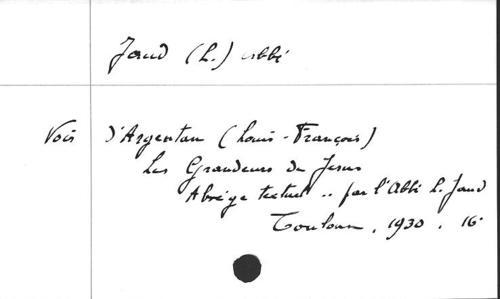 Jaud (L.) abbé
Voir d'Argentan (Louis-François)
Les Grandeurs de Jesus
Abrégé textuel .. par l'Abbé L. Jaud
Toulouse, 1930. 16°